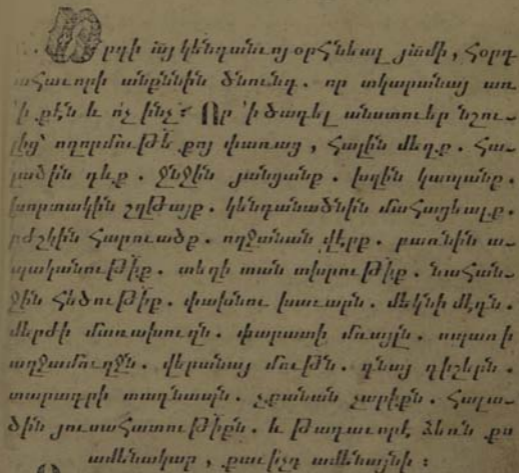 Որդի այ կենդանւոյ օրհնեալ յամի, Հօրդ
ահաւորի անքննին ծնունդ. որ տկարանայ առ
'ի քէն և ոչ ինչ: Որ 'ի ծագել անստուեր նշու-
լից՝ ողորմութե քոյ փառաց, հալին մեղք. հա-
լածին դեւք. ջնջին յանցանք. խզին կապանք.
խորտակին շղթայք. կենդանածնին մահացեալք.
բժշկին հարուածք. ողջանան վէրք. բառնին ա-
պականութիք. տեղի տան տխրութիք. նահան-
ջին հեծութիք. փախնու խաւարն. մեկնի մէգն.
մերժի մառախուղն. փարատի մռայլն. սպառի
աղջամուղջն. վերանայ մութն. գնայ գիշերն.
տարագրի տագնապն. չքանան չարիքն. հալա-
ծին յուսահատութիքն. և թագաւորէ ձեռն քո
ամենակար, քաւիչդ ամենայնի: